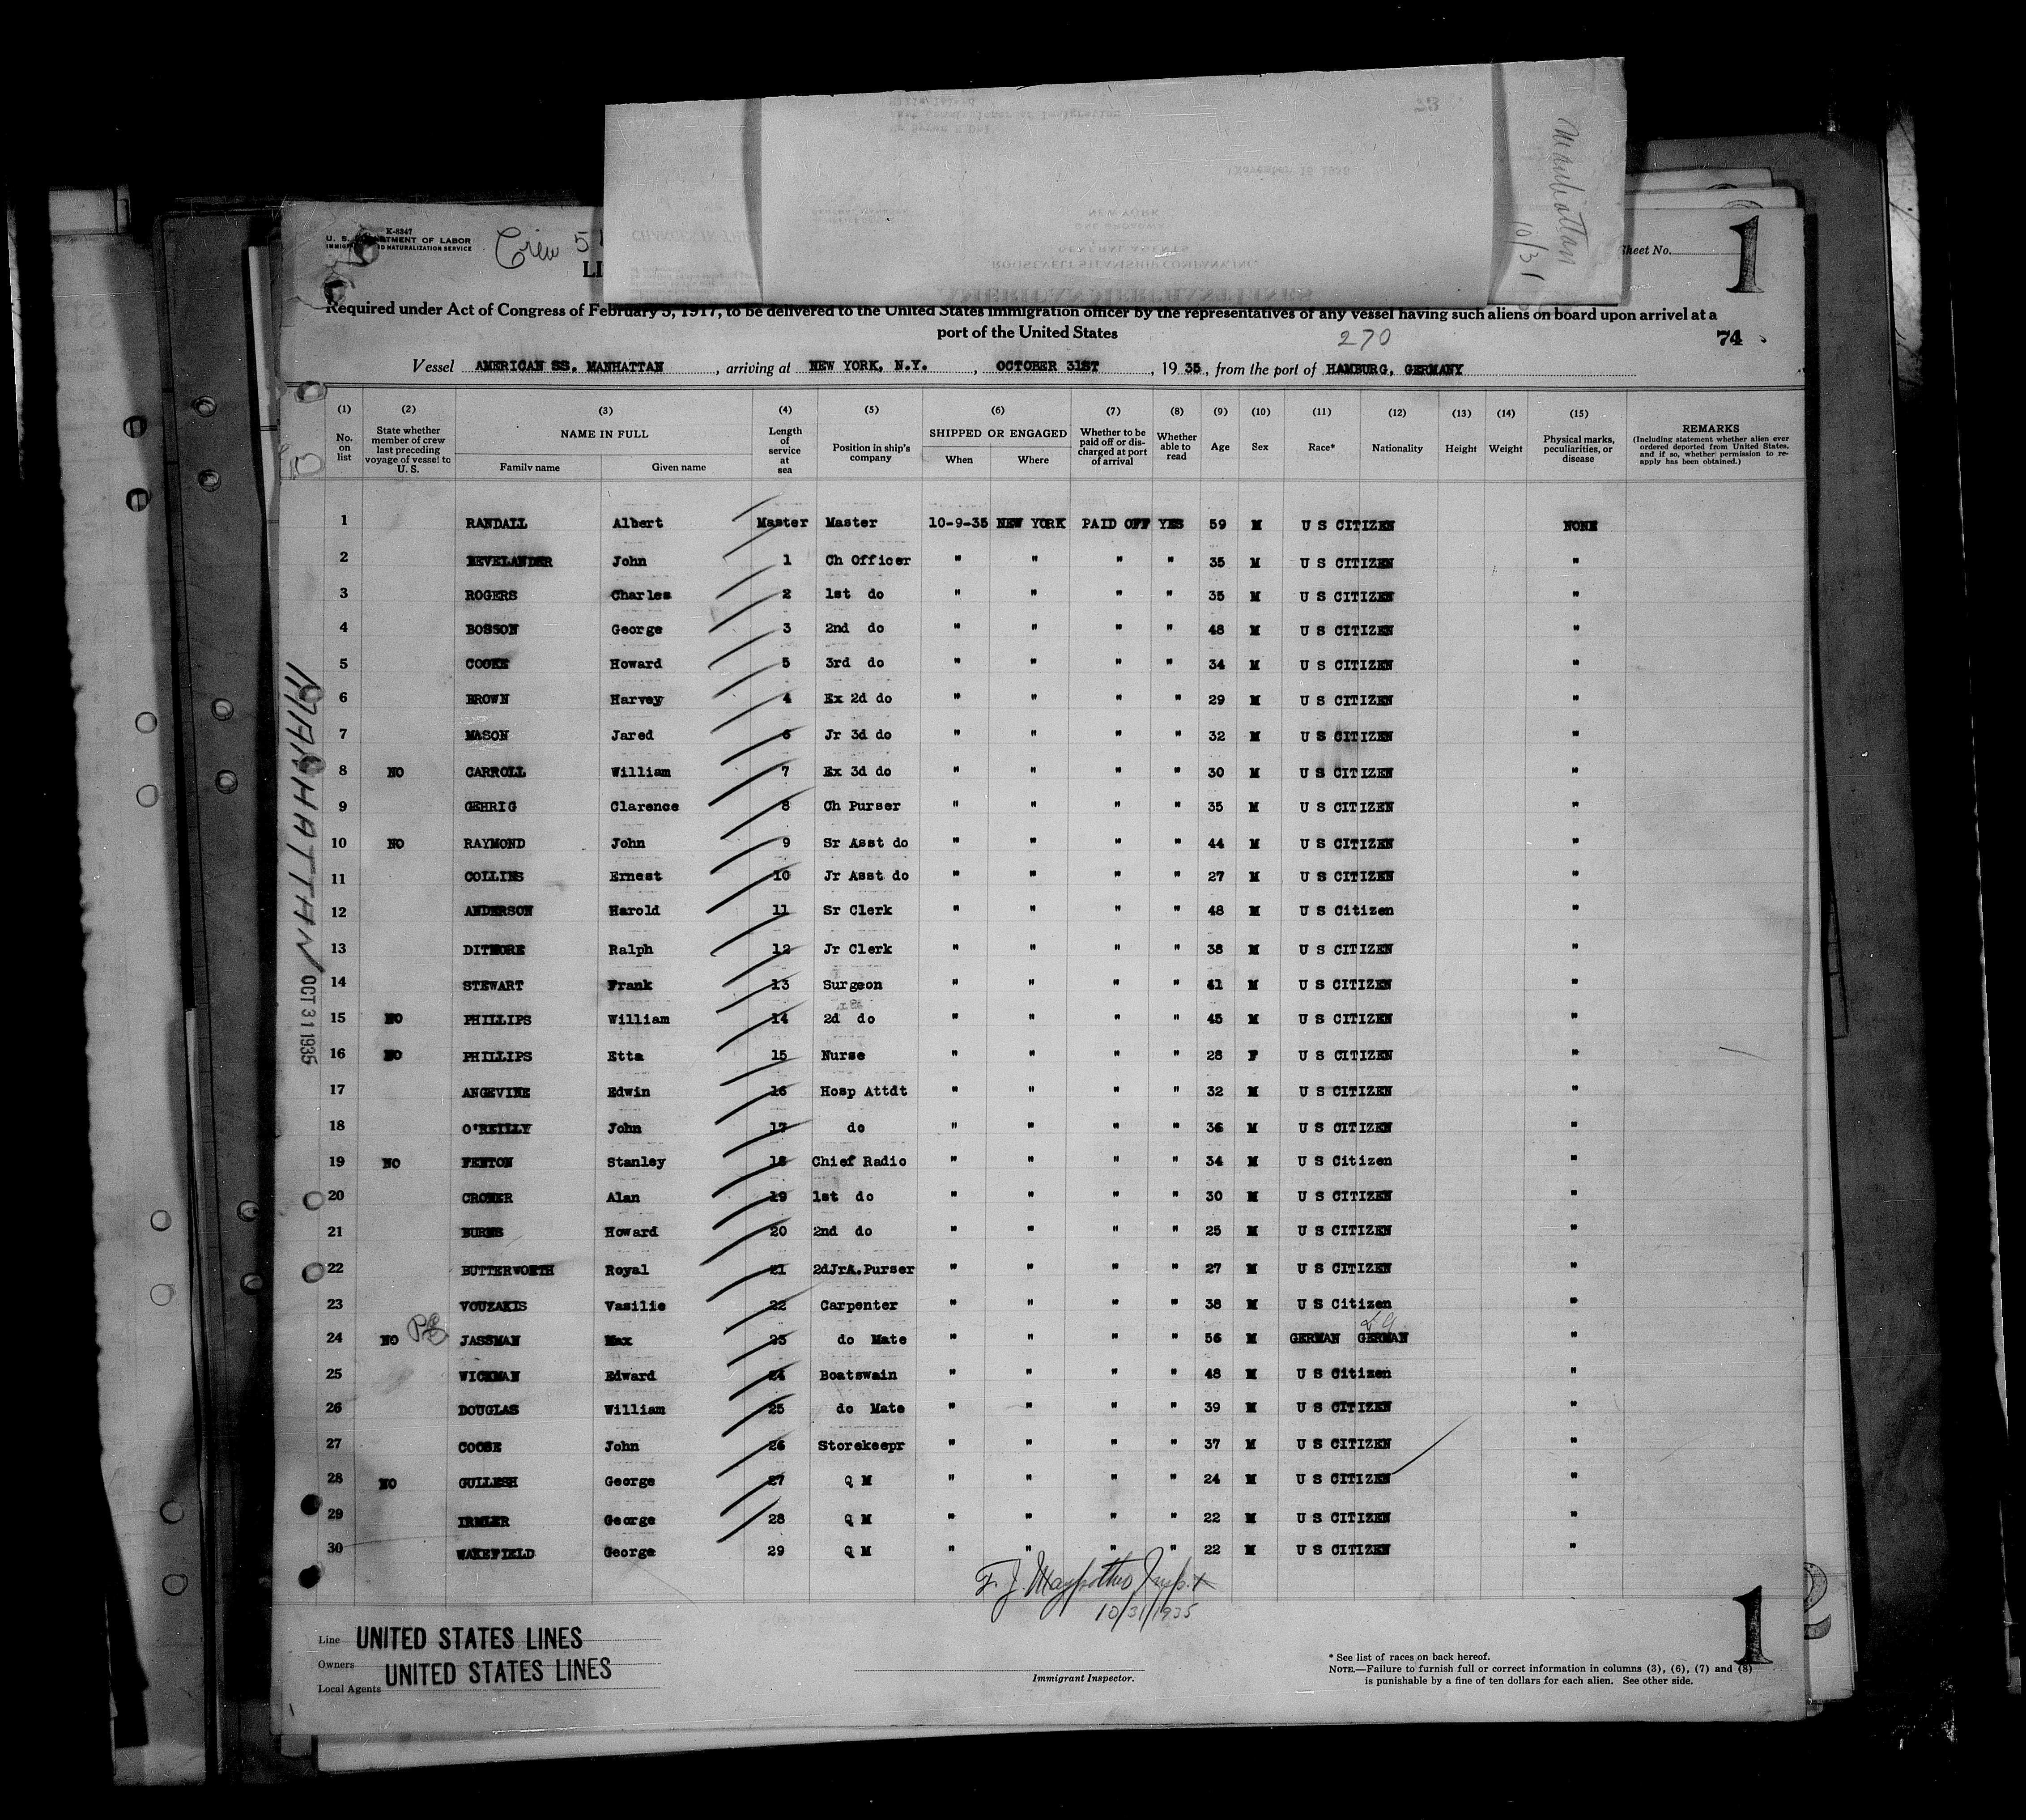 Manhattan
10/31
73
November 15 1935
NEW YORK
GENERAL AGENTS
ROOSEVELT STEAMSHIP COMPANY, INC.
AMERICAN MERCHANT LINES
K-8347
U. S. DEPARTMENT OF LABOR
IMMIGRATION AND NATURALIZATION SERVICE
Crew 5
LI
Sheet No. 1
Required under Act of Congress of February 5, 1917, to be delivered to the United States immigration officer by the representatives of any vessel having such aliens on board upon arrival at a
port of the United States
270
74
Vessel AMERICAN SS. MANHATTAN, arriving at NEW YORK, N.Y., OCTOBER 31ST, 1935, from the port of HAMBURG, GERMANY
(1) (2) (3) (4) (5) (6) (7) (8) (9) (10) (11) (12) (13) (14) (15) REMARKS
No. on list | State whether member of crew last preceding voyage of vessel to U. S. | NAME IN FULL Family name Given name | Length of service at sea | Position in ship's company | SHIPPED OR ENGAGED When Where | Whether to be paid off or discharged at port of arrival | Whether able to read | Age | Sex | Race* | Nationality | Height | Weight | Physical marks, peculiarities, or disease | (Including statement whether alien ever ordered deported from United States, and if so, whether permission to re-apply has been obtained.)
1 RANDALL Albert Master Master 10-9-35 NEW YORK PAID OFF YES 59 M U S CITIZEN NONE
2 BEVELANDER John 1 Ch Officer " " " " 35 M U S CITIZEN "
3 ROGERS Charles 2 1st do " " " " 35 M U S CITIZEN "
4 BOSSON George 3 2nd do " " " " 48 M U S CITIZEN "
5 COOKE Howard 5 3rd do " " " " 34 M U S CITIZEN "
6 BROWN Harvey 4 Ex 2d do " " " " 29 M U S CITIZEN "
7 MASON Jared 6 Jr 3d do " " " " 32 M U S CITIZEN "
8 NO CARROLL William 7 Ex 3d do " " " " 30 M U S CITIZEN "
9 GEHRIG Clarence 8 Ch Purser " " " " 35 M U S CITIZEN "
10 NO RAYMOND John 9 Sr Asst do " " " " 44 M U S CITIZEN "
11 COLLINS Ernest 10 Jr Asst do " " " " 27 M U S CITIZEN "
12 ANDERSON Harold 11 Sr Clerk " " " " 48 M U S Citizen "
13 DITMORE Ralph 12 Jr Clerk " " " " 38 M U S CITIZEN "
14 STEWART Frank 13 Surgeon " " " " 41 M U S CITIZEN "
15 NO PHILLIPS William 14 2d do " " " " 45 M U S CITIZEN "
16 NO PHILLIPS Etta 15 Nurse " " " " 28 F U S CITIZEN "
17 ANGEVINE Edwin 16 Hosp Attdt " " " " 32 M U S CITIZEN "
18 O'REILLY John 17 do " " " " 36 M U S CITIZEN "
19 NO FENTON Stanley 18 Chief Radio " " " " 34 M U S Citizen "
20 CROMER Alan 19 1st do " " " " 30 M U S CITIZEN "
21 BURNS Howard 20 2nd do " " " " 25 M U S CITIZEN "
22 BUTTERWORTH Royal 21 2dJrA.Purser " " " " 27 M U S CITIZEN "
23 VOUZAKIS Vasilie 22 Carpenter " " " " 38 M U S Citizen "
24 NO JASSMAN Max 23 do Mate " " " " 56 M GERMAN GERMAN "
25 WICKMAN Edward 24 Boatswain " " " " 48 M U S Citizen "
26 DOUGLAS William 25 do Mate " " " " 39 M U S CITIZEN "
27 COOSE John 26 Storekeepr " " " " 37 M U S CITIZEN "
28 NO GULLESH George 27 Q M " " " " 24 M U S CITIZEN "
29 IRMLER George 28 Q M " " " " 22 M U S CITIZEN "
30 WAKEFIELD George 29 Q M " " " " 22 M U S CITIZEN "
MANHATTAN OCT 31 1935
10/31/1935
Line UNITED STATES LINES
Owners UNITED STATES LINES
Local Agents
Immigrant Inspector.
* See list of races on back hereof.
NOTE.—Failure to furnish full or correct information in columns (3), (6), (7) and (8)
is punishable by a fine of ten dollars for each alien. See other side.
1
2